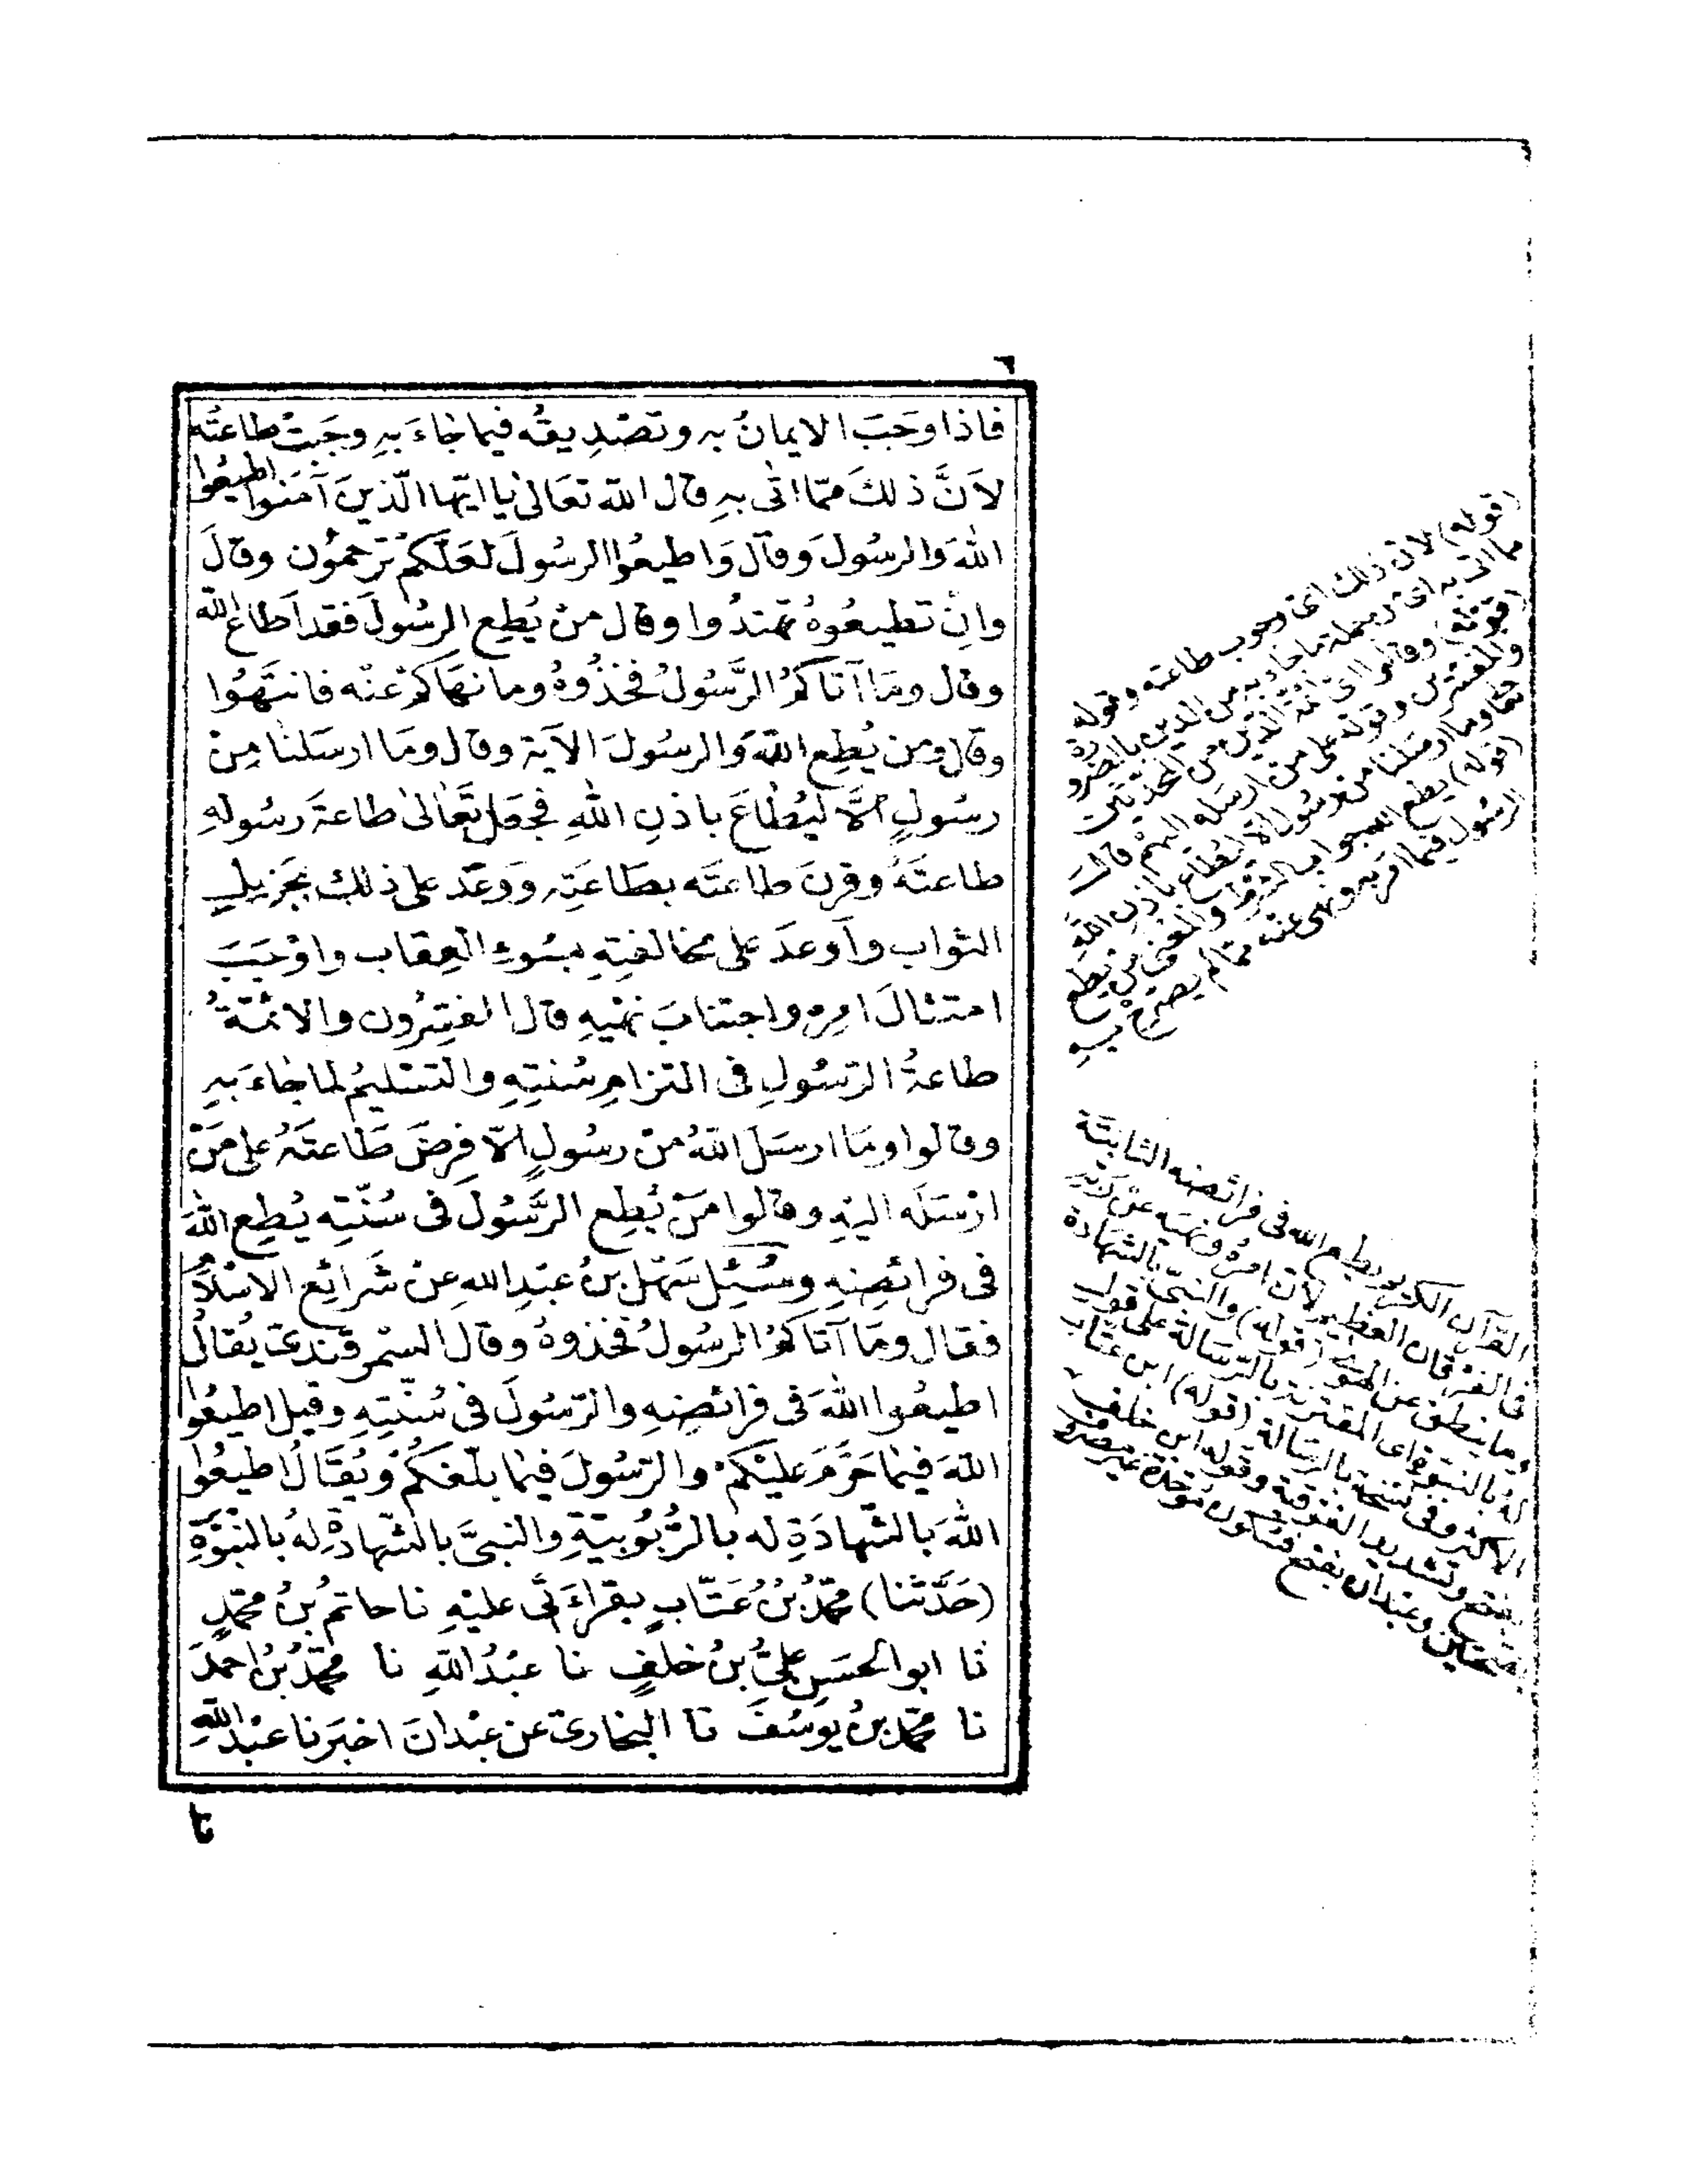 ٦
فاذا وَجَبَ الايمانُ به وتصْدِيقُه فيما جَاءَ بِهِ وجَبَتْ طاعَتُه
لاَنَّ ذلكَ ممّا اتٰى بِهِ قال الله تعَالىٰ يا ايّها الّذينَ آمَنوا اطيعُوا
اللهَ وَالرسُولَ وقال وَاطيعُوا الرسُولَ لعَلّكمْ تُرحمُون وقالَ
وانْ تطيعُوهُ تهتدُوا وقال منْ يُطِع الرسُولَ فقد اَطاعَ الله
وقال ومَا آتاكمُ الرَّسُولُ فخذُوهُ وما نهَاكمْ عنْه فانتَهُوا
وقال ومن يُطِع اللهَ وَالرسُولَ الآيَة وقال ومَا ارسَلنا مِنْ
رسُولٍ الَّا ليُطَاعَ باذنِ اللهِ فجَعَل تَعَالىٰ طاعةَ رسُولهِ
طاعتَهُ وقرنَ طاعتَه بطَاعَتِه ووَعَد على ذلكَ بجَزيلِ
الثواب وأوعدَ على مخالفتِهِ بسُوءِ العِقاب واوْجَبَ
امتثالَ امرِه واجتنابَ نهْيِهِ قال المفسِّرُون والائمّةُ
طاعةُ الرّسُولِ فى التزامِ سُنتِهِ والتسْليمُ لما جَاءَ بهِ
وقالوا ومَا ارسَلَ اللهُ منْ رسُولٍ الّا فرضَ طَاعتَهُ على مَنْ
ارْسَلَه اليْهِ وقالوا مَنْ يُطِع الرَّسُولَ فى سُنّتِه يُطِع اللهَ
فى فرائضِهِ وسُئِل سَهْل بنُ عبْدِ اللهِ عنْ شَرائِع الاسْلامِ
فقال ومَا آتاكمُ الرسُولُ فخذوهُ وقال السّمرقندىّ يُقالُ
اطيعُوا اللهَ فى فرائضِهِ والرّسُولَ فى سُنّتِهِ وقيل اطيعُوا
اللهَ فيمَا حَرَّمَ عليْكمْ والرّسُولَ فيمَا بلّغكُمْ ويُقَالُ اطيعُوا
اللهَ بالشّهادَةِ له بالرُّبُوبيّةِ والنبىَّ بالشّهادةِ لهُ بالنبُوّةِ
(حَدَّثنا) محمّدُ بْنُ عَتّابٍ بقراءَتى عليْهِ نا حاتمُ بنُ محمّدٍ
نا ابو الحسَنِ علىُّ بنُ خلفٍ نا عبْدُ اللهِ نا محمّدُ بنُ احمَدَ
نا محمّد بنُ يوسُفَ نا البخارىّ عن عبْدانَ اخبَرنا عبْدُ اللهِ
(قوله) لانّ ذلك اى وجوب طاعته وقوله
مما اتى به اى من جملة ما جاء به من الدين بالضرورة
(قوله) وقالوا اى ائمّة الدّين من المحدّثين
والمفسّرين وقوله على من ارسله اليهم قال
الله وما ارسلنا من رسول الّا ليُطاع باذن الله
(قوله) يطع الله جواب الشرط والمعنى من يطع
الرسول فيما امر به ونهى عنه ممّا لم يصرّح به
القرآن الكريم يطع الله فى فرائضه الثابتة
فى الفرقان العظيم لانّ امره ونهيه عن ربّه
وما ينطق عن الهوى (قوله) والنبىّ بالشهادة
له بالنبوة اى المقترنة بالرّسالة على قول
الاكثر وفى نسخة بالرّسالة (قوله) ابن عتاب
بفتح وتشديد الفوقية وقوله ابن خلف
بفتحتين وعبدان بفتح فسكون موحّدة غير مصروف